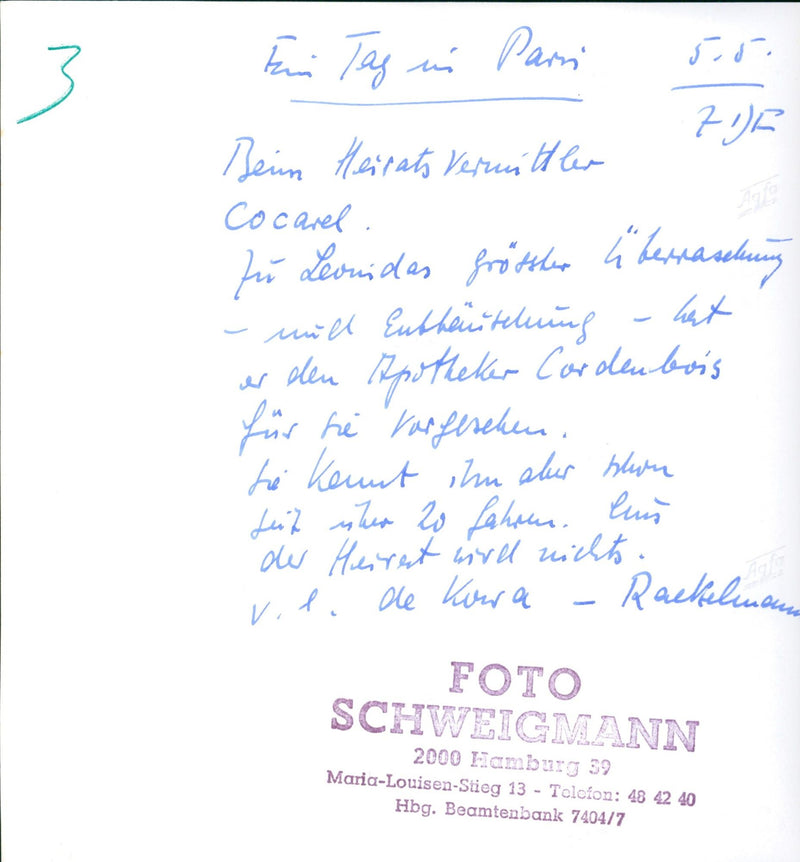 3
Ein Tag in Paris 5.5.
ZDF
Beim Heiratsvermittler
Cocarel.
Zu Leonidas grösster Überraschung
– und Enttäuschung – hat
er den Apotheker Cordenbois
für sie vorgesehen.
Sie kennt ihn aber schon
seit über 20 Jahren. Aus
der Heirat wird nichts.
v. l. de Kowa – Rackelmann
Agfa
Agfa
FOTO
SCHWEIGMANN
2000 Hamburg 39
Maria-Louisen-Stieg 13 - Telefon: 48 42 40
Hbg. Beamtenbank 7404/7